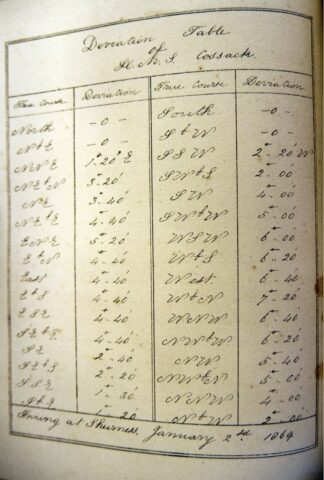 Deviation Table
of
H.M.S. Cossack
True Course Deviation True Course Deviation
North -0- South -0-
N b E -0- S b W -0-
NNE 1° 20' E SSW 2° 20' W
NE b N 3° 20' SW b S 2° 00'
NE 3° 40' SW 4° 00'
NE b E 4° 40' SW b W 5° 00'
ENE 5° 20' WSW 6° 00'
E b N 4° 40' W b S 6° 20'
East 4° 40' West 6° 40'
E b S 4° 40' W b N 7° 20'
ESE 4° 40' WNW 6° 40'
SE b E 4° 40' NW b W 6° 20'
SE 2° 40' NW 5° 40'
SE b S 2° 20' NW b N 5° 00'
SSE 1° 30' NNW 4° 00'
S b E 20 N b W 2° 00'
at Sheerness, January 2nd 1869